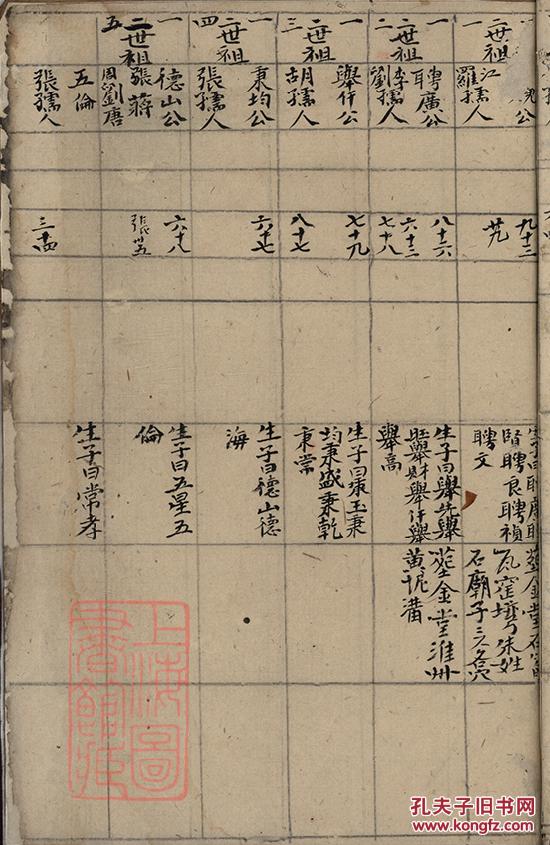 二世祖
一
公
江孺人
羅
九十三
生子曰聘廣聘
賢聘良聘禎
聘文
葬金堂石
瓦窑埧朱姓
石廟子三名穴
二世祖
一
二
聘廣公
李孺人
劉
八十六
六十三
七十八
生子曰舉先舉
旺舉財舉仟舉
舉高
葬金堂淮州
黄泥溝
二世祖
一
三
舉仟公
胡孺人
七十九
八十七
生子曰秉玉秉
均秉盛秉乾
秉常
二世祖
一
四
秉均公
張孺人
六十七
生子曰德山德
海
二世祖
一
五
德山公
張蔣
周劉唐
六十八
張卅五
生子曰五星五
倫
五倫
張孺人
三十四
生子曰常孝
上海圖
書館所
孔夫子旧书网
www.kongfz.com